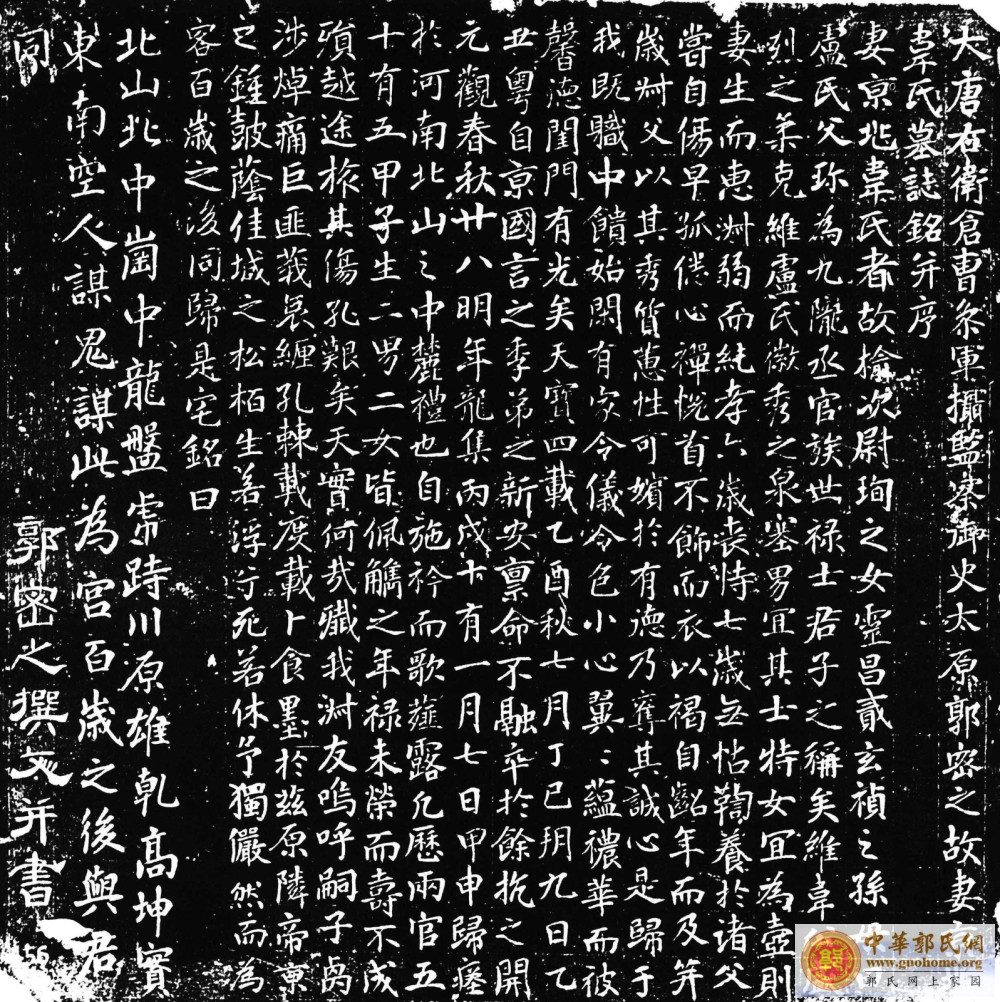 大唐右衛倉曹叅軍攝監察御史太原郭密之故妻京
韋氏墓誌銘并序
妻京兆韋氏者故榆次尉珣之女靈昌貳玄禎之孫
盧氏父珎為九隴丞官族世禄士君子之稱矣維韋
烈之柔克維盧氏徽秀之泉塞男宜其士特女宜為壼則
妻生而惠淋弱而純孝六歲喪恃七歲無怙鞠養於諸父
嘗自傷早孤倦心禪悦首不飾而衣以褐自齠年而及笄
歲淋父以其秀質蕙性可嬪於有德乃奪其誠心是歸于
我既職中饋始閑有家令儀令色小心翼〻蘊禮華而彼
馨德閨門有光矣天寶四載乙酉秋七月丁巳玥九日乙
丑粤自京國言之季弟之新安禀命不融卒於餘抗之開
元觀春秋廿八明年龍集丙戌十有一月七日甲申歸窆
於河南北山之中麓禮也自施衿而歌薤露凡歷兩官五
十有五甲子生二男二女皆佩觿之年禄未榮而壽不成
殞越途旅其傷孔艱矣天實何哉殲我淋友嗚呼嗣子卨
涉焯痛巨匪莪哀纏孔棘載度載卜食墨於兹原隣帝京
之鍾皷蔭佳城之松栢生若浮兮死若休予獨儼然而為
客百歲之後同歸是宅銘曰
北山北中崗中龍盤虎跱川原雄乹髙坤實
東南空人謀鬼謀此為宫百歲之後與君
同
郭密之撰文并書
中華郭氏網
www.guohome.org
郭氏网上家园